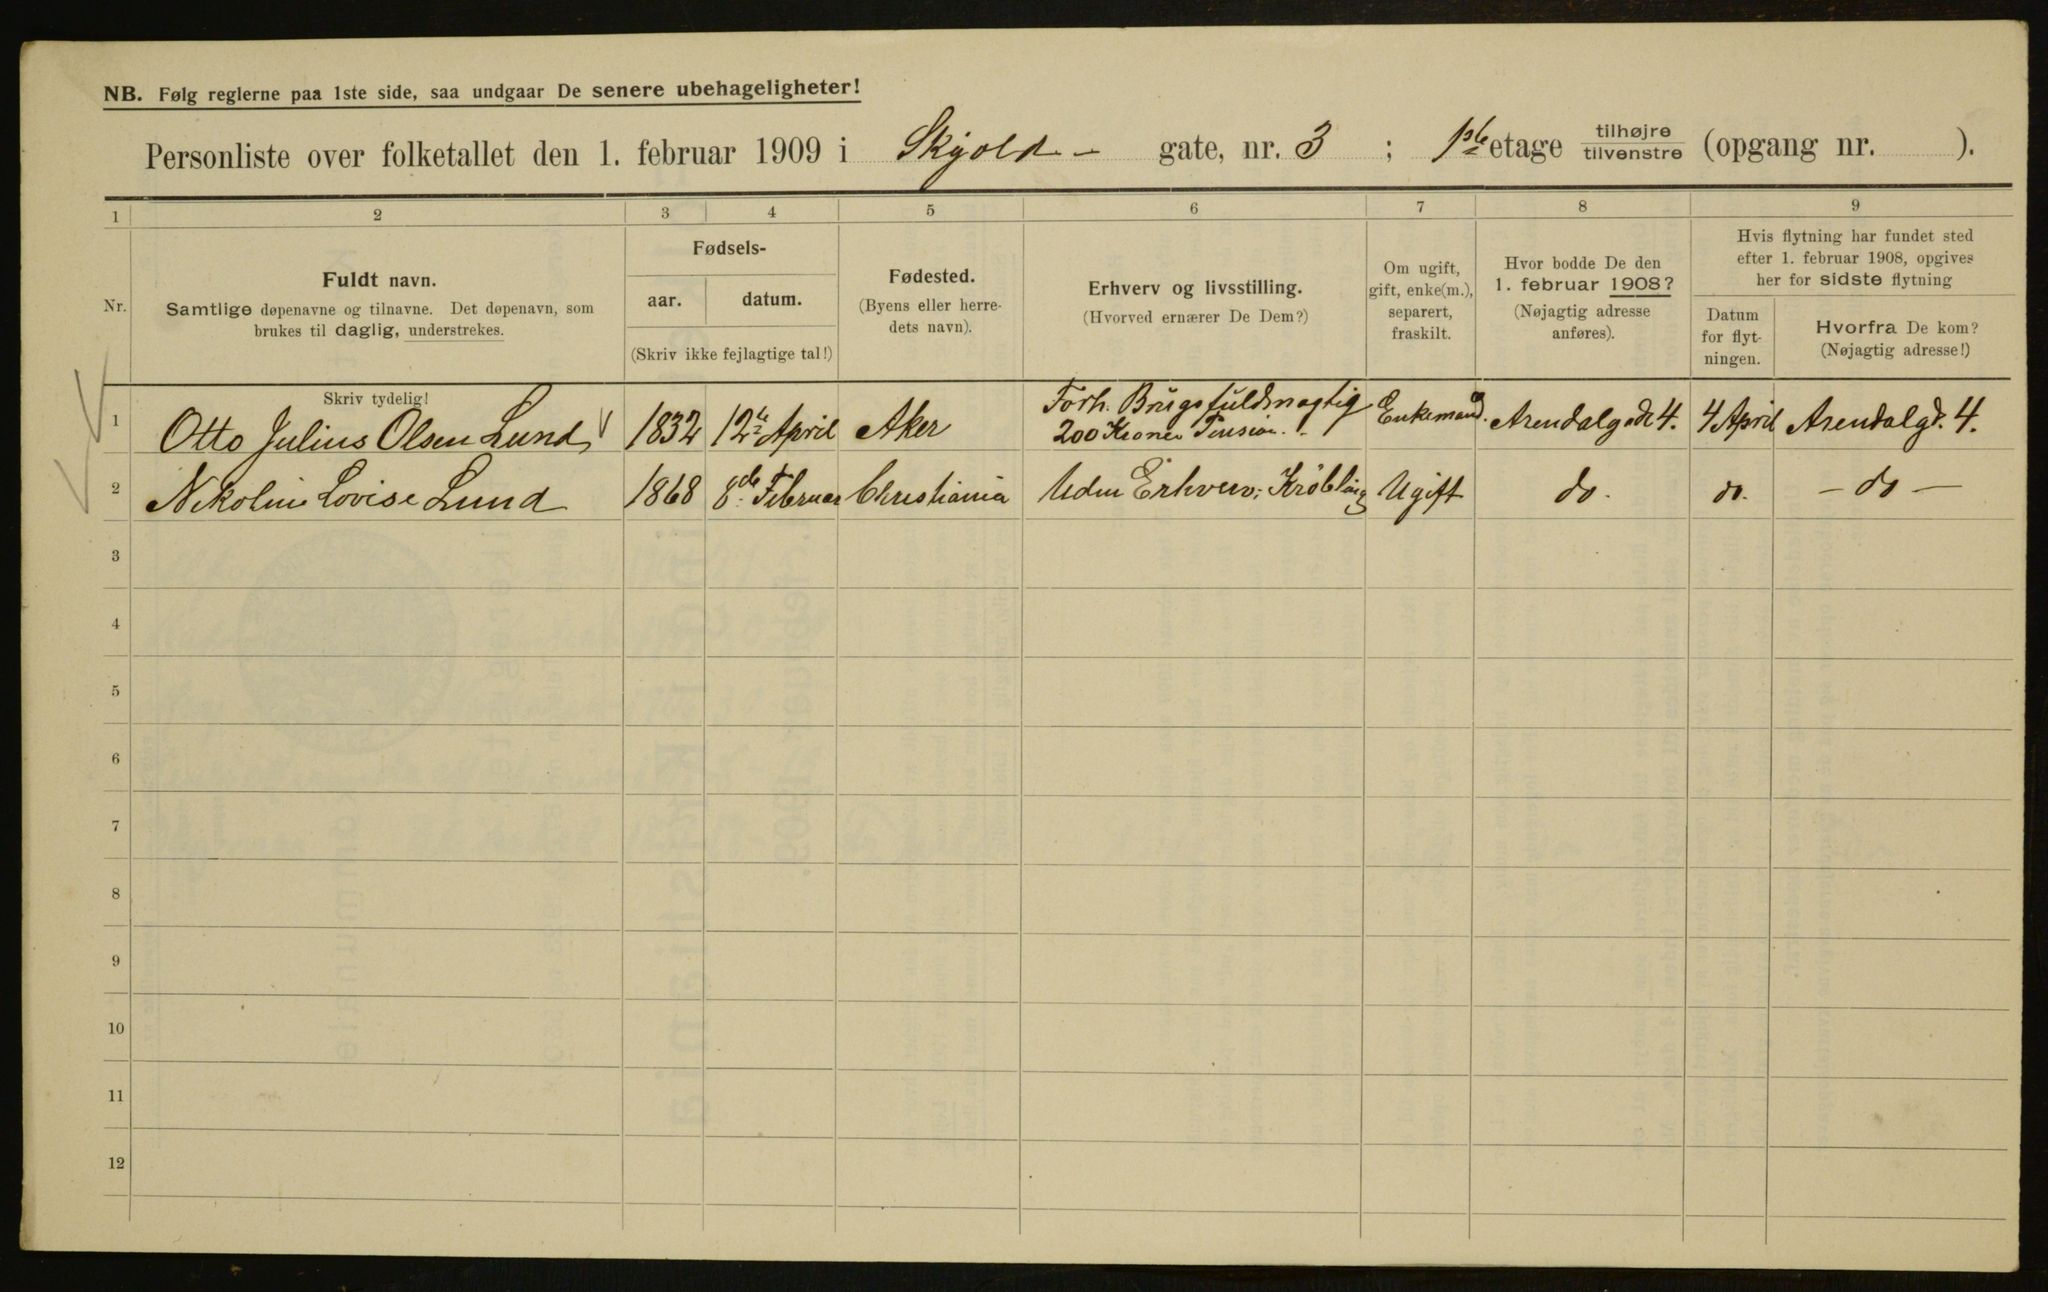 NB. Følg reglerne paa 1ste side, saa undgaar De senere ubehageligheter!
Personliste over folketallet den 1. februar 1909 i Skjold- gate, nr. 3 ; 1ste etage tilhøjre tilvenstre (opgang nr. ).
1 2 3 4 5 6 7 8 9
Nr.
Fuldt navn.
Samtlige døpenavne og tilnavne. Det døpenavn, som
brukes til daglig, understrekes.
Skriv tydelig!
Fødsels-
aar. datum.
(Skriv ikke fejlagtige tal!)
Fødested.
(Byens eller herre-
dets navn).
Erhverv og livsstilling.
(Hvorved ernærer De Dem?)
Om ugift,
gift, enke(m.),
separert,
fraskilt.
Hvor bodde De den
1. februar 1908?
(Nøjagtig adresse
anføres).
Hvis flytning har fundet sted
efter 1. februar 1908, opgives
her for sidste flytning
Datum
for flyt-
ningen.
Hvorfra De kom?
(Nøjagtig adresse!)
1 Otto Julius Olsen Lund 1832 12te April Aker Forh. Brugsfuldmægtig 200 Kroner Pension. Enkemand. Arendalgade 4. 4 April Arendalgd. 4.
2 Nikoline Lovise Lund 1868 8de Februar Christiania Uden Erhverv; Krøbling Ugift do. do. - do -
3
4
5
6
7
8
9
10
11
12